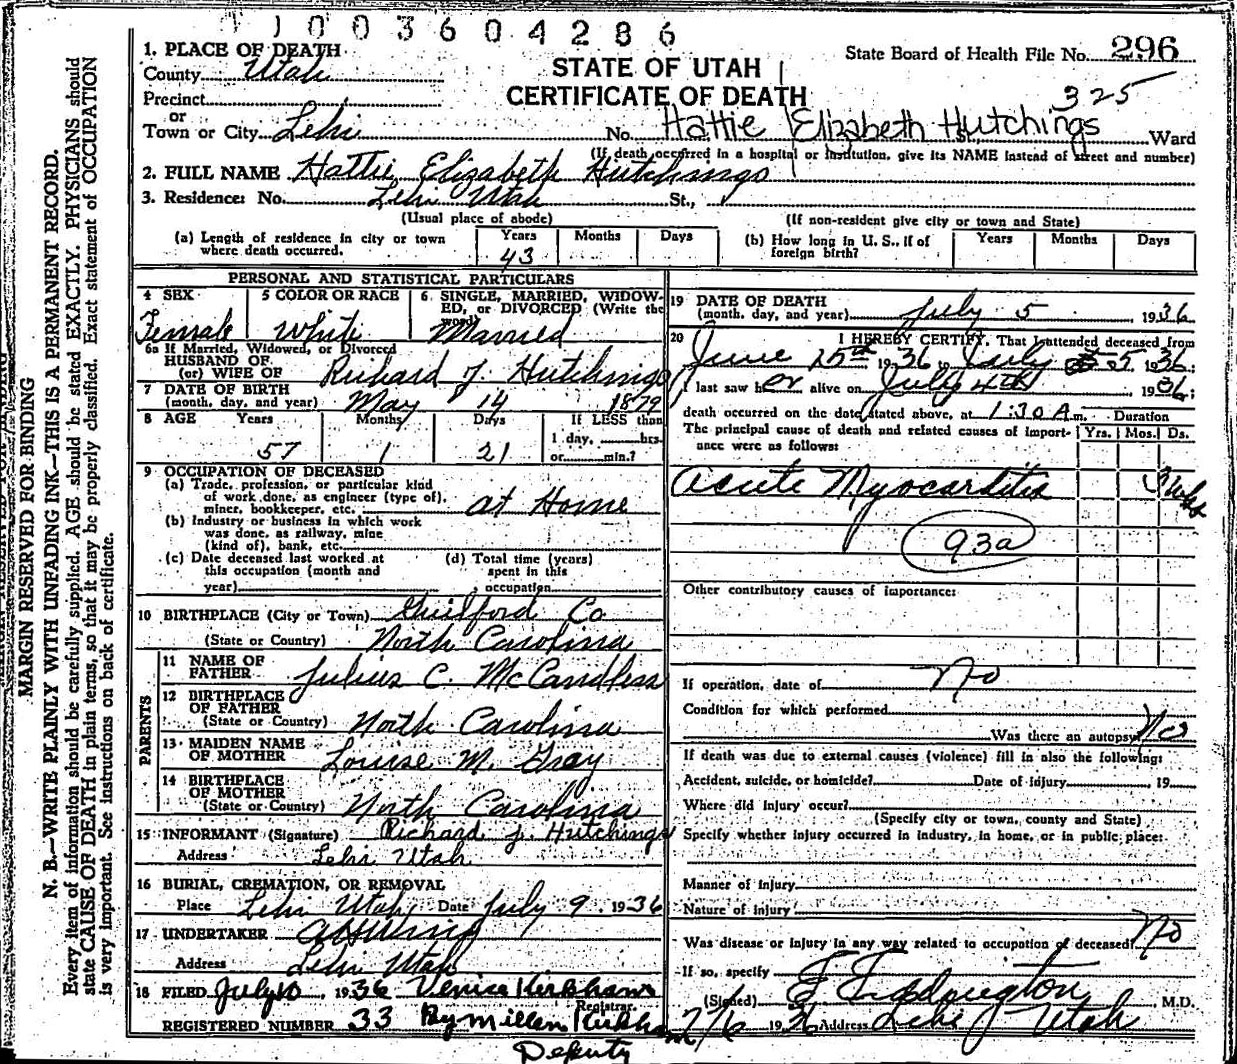 1003604286
1. PLACE OF DEATH
State Board of Health File No. 296
County Utah
STATE OF UTAH
Precinct
CERTIFICATE OF DEATH
325
or
Town or City Lehi No. Hattie Elizabeth Hutchings Ward
(If death occurred in a hospital or institution, give its NAME instead of street and number)
2. FULL NAME Hattie Elizabeth Hutchings
3. Residence: No. Lehi Utah St.,
(Usual place of abode) (If non-resident give city or town and State)
(a) Length of residence in city or town where death occurred. Years 43 Months Days
(b) How long in U. S., if of foreign birth? Years Months Days
PERSONAL AND STATISTICAL PARTICULARS
4 SEX Female
5 COLOR OR RACE White
6. SINGLE, MARRIED, WIDOWED, or DIVORCED (Write the word) Married
6a If Married, Widowed, or Divorced
HUSBAND OF
(or) WIFE OF Richard J. Hutchings
7 DATE OF BIRTH
(month, day, and year) May 14 1879
8 AGE Years Months Days If LESS than
57 1 21 1 day, hrs.
or min.?
9 OCCUPATION OF DECEASED
(a) Trade, profession, or particular kind
of work done, as engineer (type of),
miner, bookkeeper, etc. at Home
(b) Industry or business in which work
was done, as railway, mine
(kind of), bank, etc.
(c) Date deceased last worked at
this occupation (month and
year)
(d) Total time (years)
spent in this
occupation
10 BIRTHPLACE (City or Town) Guilford Co
(State or Country) North Carolina
PARENTS
11 NAME OF
FATHER Julius C. McCandless
12 BIRTHPLACE
OF FATHER
(State or Country) North Carolina
13 MAIDEN NAME
OF MOTHER Louise M. Gray
14 BIRTHPLACE
OF MOTHER
(State or Country) North Carolina
15 INFORMANT (Signature) Richard J. Hutchings
Address Lehi Utah
16 BURIAL, CREMATION, OR REMOVAL
Place Lehi Utah Date July 9, 1936
17 UNDERTAKER
Address Lehi Utah
18 FILED July 10, 1936 Venice Kirkham
Registrar
REGISTERED NUMBER 33 By Millen Kirkham
Deputy
19 DATE OF DEATH
(month, day, and year) July 5 1936
20 I HEREBY CERTIFY, That I attended deceased from
June 25th 1936 July 5 1936
I last saw her alive on July 4th 1936;
death occurred on the date stated above, at 1:30 A m. Duration
The principal cause of death and related causes of importance were as follows: Yrs. Mos. Ds.
Acute Myocarditis 3 wks
93a
Other contributory causes of importance:
If operation, date of No
Condition for which performed
Was there an autopsy No
If death was due to external causes (violence) fill in also the following:
Accident, suicide, or homicide? Date of injury 19
Where did injury occur?
(Specify city or town, county and State)
Specify whether injury occurred in industry, in home, or in public place:
Manner of injury
Nature of injury
Was disease or injury in any way related to occupation of deceased? No
If so, specify
(Signed) F Eddington M.D.
7/6 1936 Address Lehi Utah
MARGIN RESERVED FOR BINDING
N. B.—WRITE PLAINLY WITH UNFADING INK—THIS IS A PERMANENT RECORD.
Every item of information should be carefully supplied. AGE should be stated EXACTLY. PHYSICIANS should
state CAUSE OF DEATH in plain terms, so that it may be properly classified. Exact statement of OCCUPATION
is very important. See instructions on back of certificate.